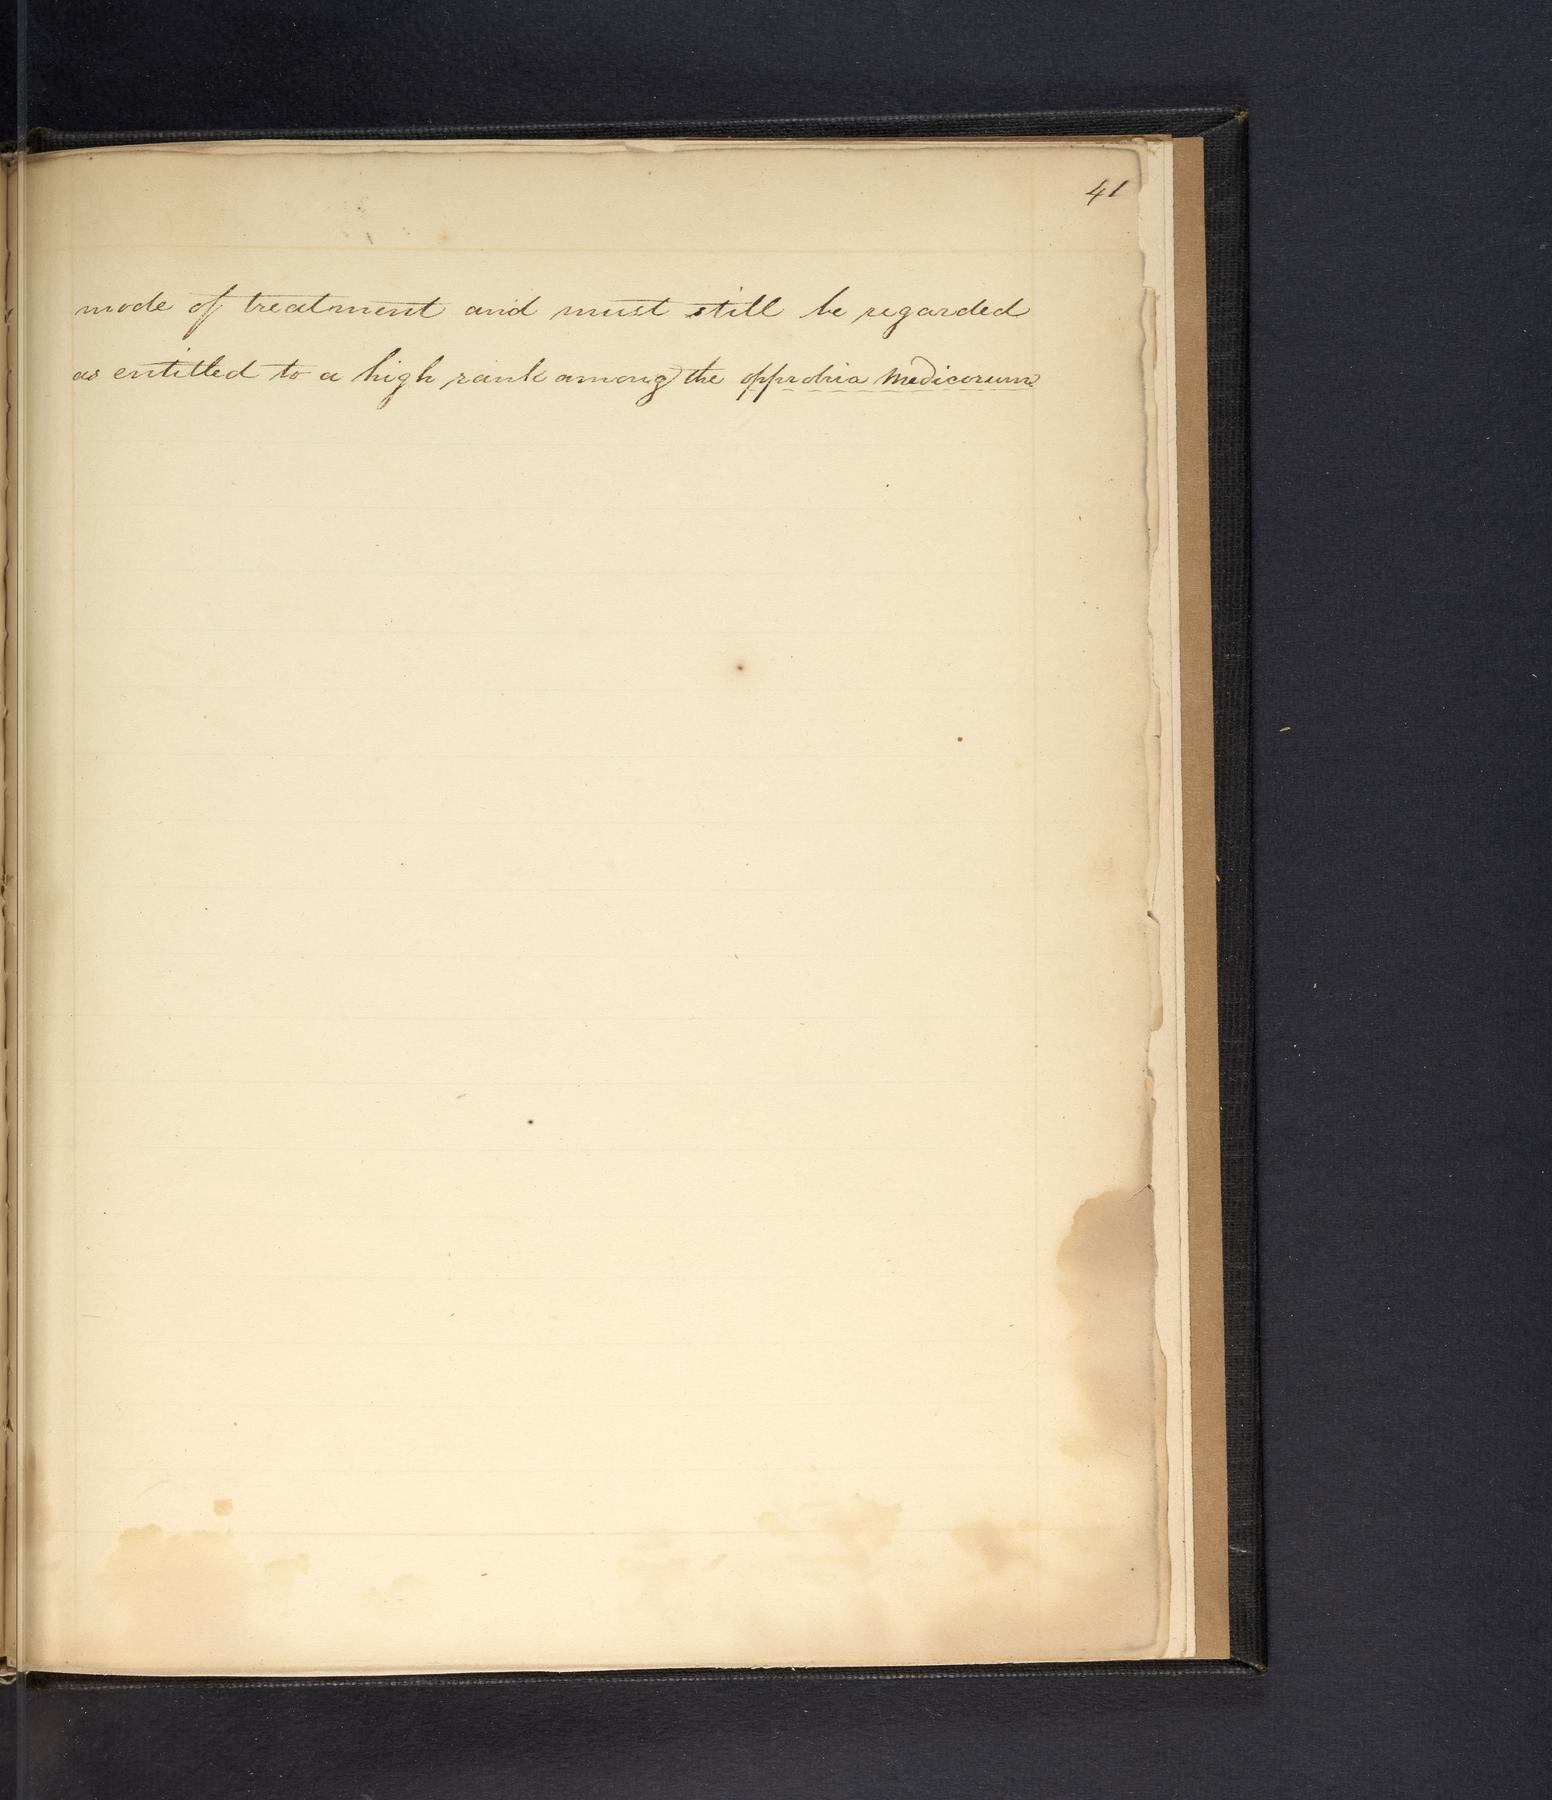 41
mode of treatment and must still be regarded
as entitled to a high rank among the opprobria medicorum